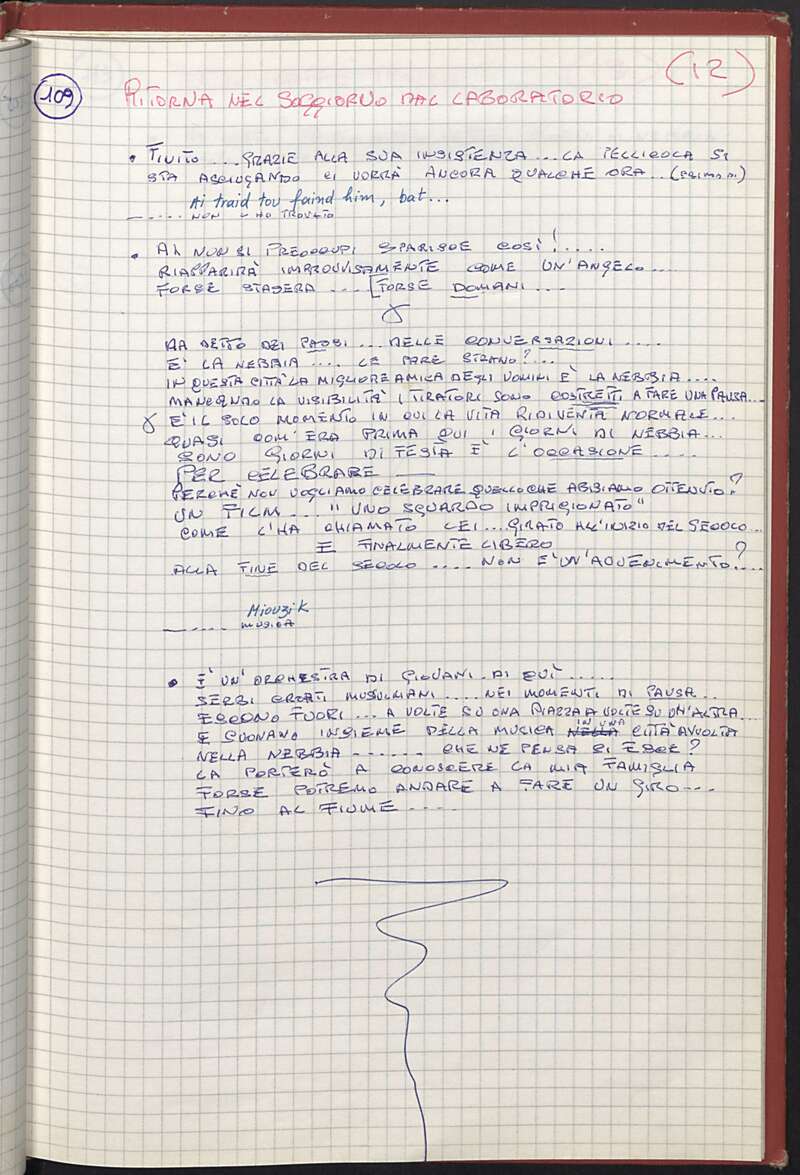 (12)
109
RITORNA NEL SOGGIORNO DAL LABORATORIO
• FINITO ... GRAZIE ALLA SUA INSISTENZA ... LA PELLICOLA SI
STA ASCIUGANDO CI VORRÀ ANCORA QUALCHE ORA ...
Ai traid tou faind him, bat ...
_ ..... NON L'HO TROVATO
• AH NON SI PREOCCUPI SPARISCE COSÌ! ....
RIAPPARIRÀ IMPROVVISAMENTE COME UN'ANGELO ....
FORSE STASERA .... [FORSE DOMANI ....
HA DETTO DEI PASSI ... DELLE CONVERSAZIONI ....
E' LA NEBBIA .... LE PARE STRANO? ...
IN QUESTA CITTÀ LA MIGLIORE AMICA DEGLI UOMINI E' LA NEBBIA ....
MANCANDO LA VISIBILITÀ I TIRATORI SONO COSTRETTI A FARE UNA PAUSA ...
E' IL SOLO MOMENTO IN CUI LA VITA RIDIVENTA NORMALE ...
QUASI COM'ERA PRIMA QUI I GIORNI DI NEBBIA ...
SONO GIORNI DI FESTA E' L'OCCASIONE .....
PER CELEBRARE ___
PERCHÈ NON VOGLIAMO CELEBRARE QUELLO CHE ABBIAMO OTTENUTO?
UN FILM .... "UNO SGUARDO IMPRIGIONATO"
COME L'HA CHIAMATO LEI .... GIRATO ALL'INIZIO DEL SECOLO ...
E FINALMENTE LIBERO
ALLA FINE DEL SECOLO .... NON E' UN'AVVENIMENTO? ....
Miouzik
_ ..... MUSICA
• E' UN'ORCHESTRA DI GIOVANI DI QUÌ .....
SERBI CROATI MUSULMANI .... NEI MOMENTI DI PAUSA ...
ESCONO FUORI ... A VOLTE SU UNA PIAZZA A VOLTE SU UN'ALTRA ...
E SUONANO INSIEME DELLA MUSICA NELLA IN UNA CITTÀ AVVOLTA
NELLA NEBBIA ....... CHE NE PENSA SI ESCE?
LA PORTERÒ A CONOSCERE LA MIA FAMIGLIA
FORSE POTREMO ANDARE A FARE UN GIRO ....
FINO AL FIUME ....